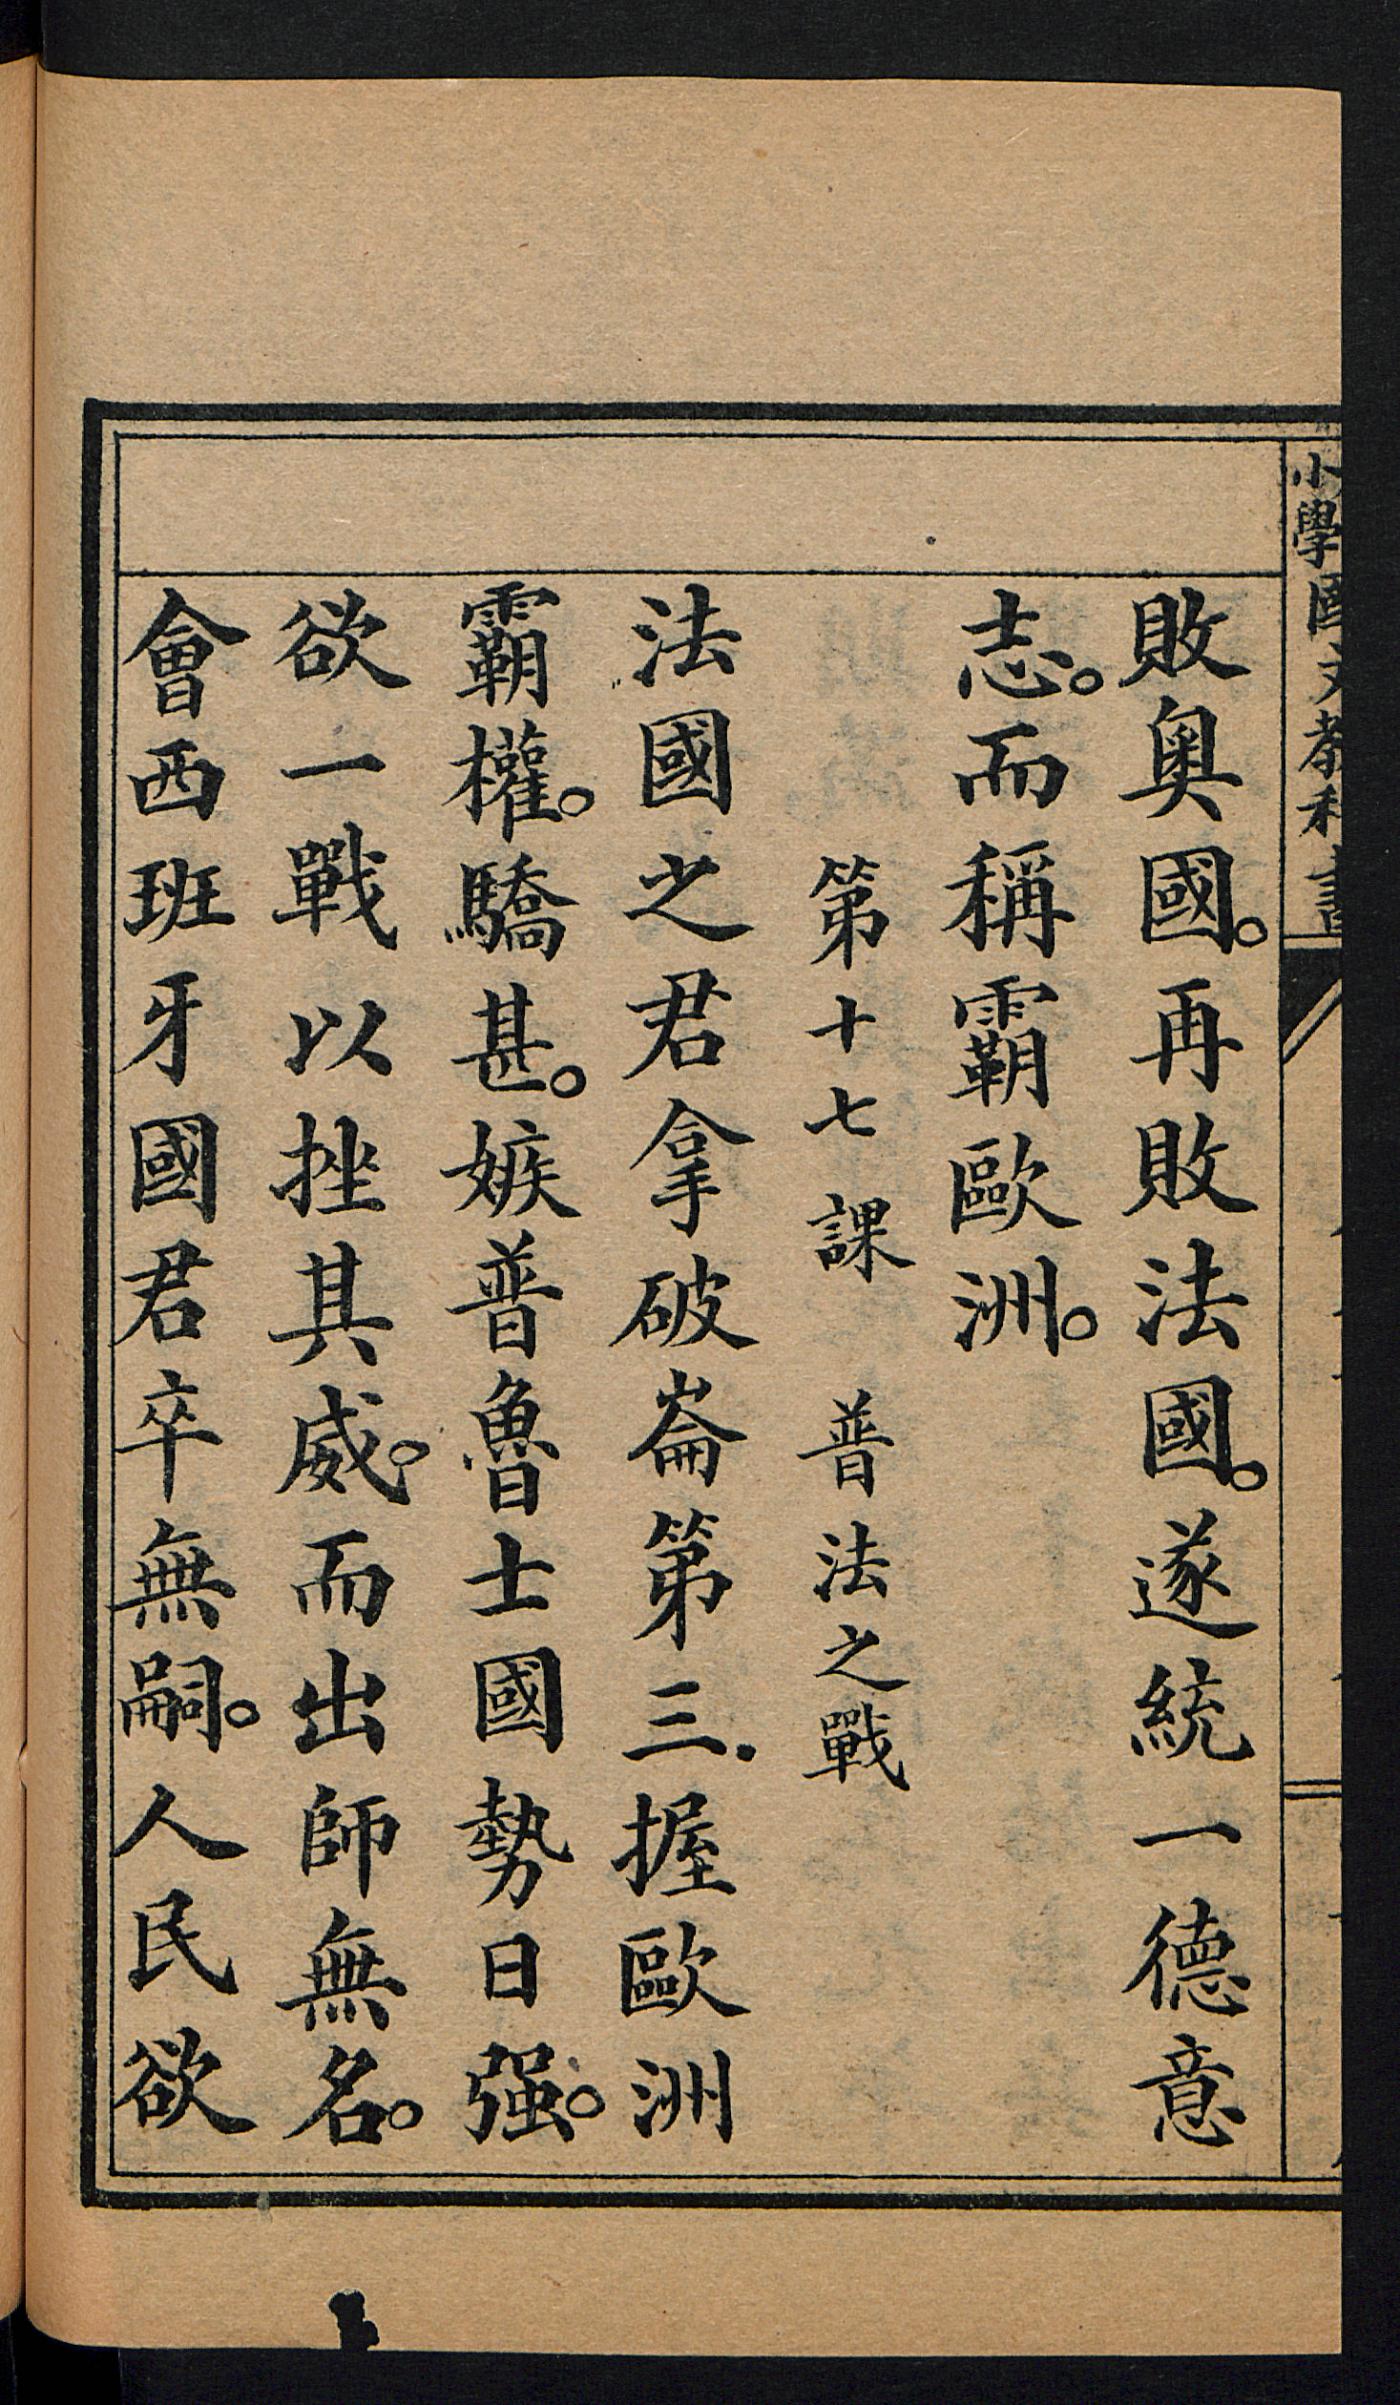 小學國文教科書
敗奧國。再敗法國。遂統一德意
志。而稱霸歐洲。
第十七課　普法之戰
法國之君拿破崙第三．握歐洲
霸權。驕甚。嫉普魯士國勢日强。
欲一戰以挫其威。而出師無名。
會西班牙國君卒無嗣。人民欲